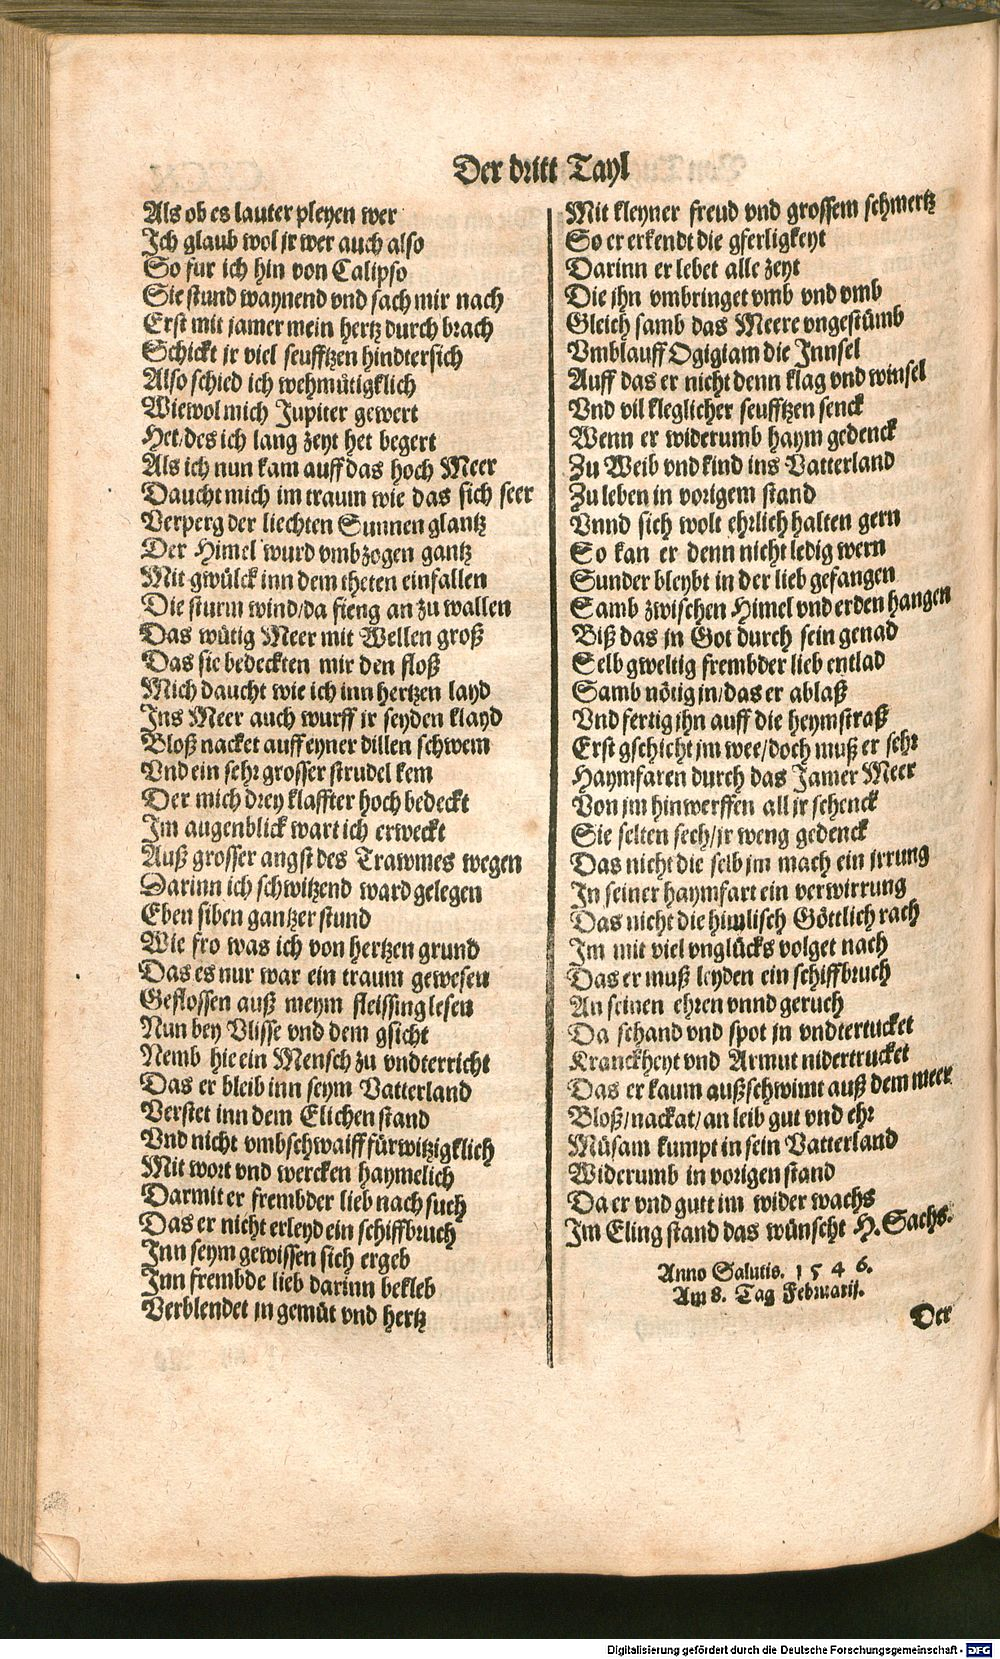 Der dritt Tayl
Als ob es lauter pleyen wer
Ich glaub wol jr wer auch also
So fur ich hin von Calipso
Sie stund waynend vnd sach mir nach
Erst mit jamer mein hertz durch brach
Schickt jr viel seufftzen hindtersich
Also schied ich wehmütigklich
Wiewol mich Jupiter gewert
Het/des ich lang zeyt het begert
Als ich nun kam auff das hoch Meer
Daucht mich im traum wie das sich seer
Verperg der liechten Sunnen glantz
Der Himel wurd vmbzogen gantz
Mit gwülck inn dem theten einfallen
Die sturm wind/da fieng an zu wallen
Das wütig Meer mit Wellen groß
Das sie bedeckten mir den floß
Mich daucht wie ich inn hertzen layd
Ins Meer auch wurff jr seyden klayd
Bloß nacket auff eyner dillen schwem
Vnd ein sehr grosser strudel kem
Der mich drey klaffter hoch bedeckt
Im augenblick wart ich erweckt
Auß grosser angst des Trawmes wegen
Darinn ich schwitzend ward gelegen
Eben siben gantzer stund
Wie fro was ich von hertzen grund
Das es nur war ein traum gewesen
Geflossen auß meym fleissing lesen
Nun bey Vlisse vnd dem gsicht
Nemb hie ein Mensch zu vndterricht
Das er bleib inn seym Vatterland
Verstet inn dem Elichen stand
Vnd nicht vmbschwaiff fürwitzigklich
Mit wort vnd wercken haymelich
Darmit er frembder lieb nach such
Das er nicht erleyd ein schiffbruch
Inn seym gewissen sich ergeb
Inn frembde lieb darinn bekleb
Verblendet in gemüt vnd hertz
Mit kleyner freud vnd grossem schmertz
So er erkendt die gferligkeyt
Darinn er lebet alle zeyt
Die jhn vmbringet vmb vnd vmb
Gleich samb das Meere vngestümb
Vmblauff Ogigiam die Innsel
Auff das er nicht denn klag vnd winsel
Vnd vil kleglicher seufftzen senck
Wenn er widerumb haym gedenck
Zu Weib vnd kind ins Vatterland
Zu leben in vorigem stand
Vnnd sich wolt ehrlich halten gern
So kan er denn nicht ledig wern
Sunder bleybt in der lieb gefangen
Samb zwischen Himel vnd erden hangen
Biß das jn Got durch sein genad
Selb gweltig frembder lieb entlad
Samb nötig in/das er ablaß
Vnd fertig jhn auff die heymstraß
Erst gschicht jm wee/doch muß er sehr
Haymfaren durch das Jamer Meer
Von jm hinwerffen all jr schenck
Sie selten sech/jr weng gedenck
Das nicht die selb jm mach ein jrrung
In seiner haymfart ein verwirrung
Das nicht die himlisch Göttlich rach
Im mit viel vnglücks volget nach
Das er muß leyden ein schiffbruch
An seinen ehren vnnd geruch
Da schand vnd spot jn vndtertucket
Kranckheyt vnd Armut nidertrucket
Das er kaum außschwimt auß dem meer
Bloß/nackat/an leib gut vnd ehr
Müsam kumpt in sein Vatterland
Widerumb in vorigen stand
Da er vnd gutt im wider wachs
Im Eling stand das wünscht H. Sachs.
Anno Salutis. 1 5 4 6.
Am 8. Tag Februarij.
Der
Digitalisierung gefördert durch die Deutsche Forschungsgemeinschaft - DFG